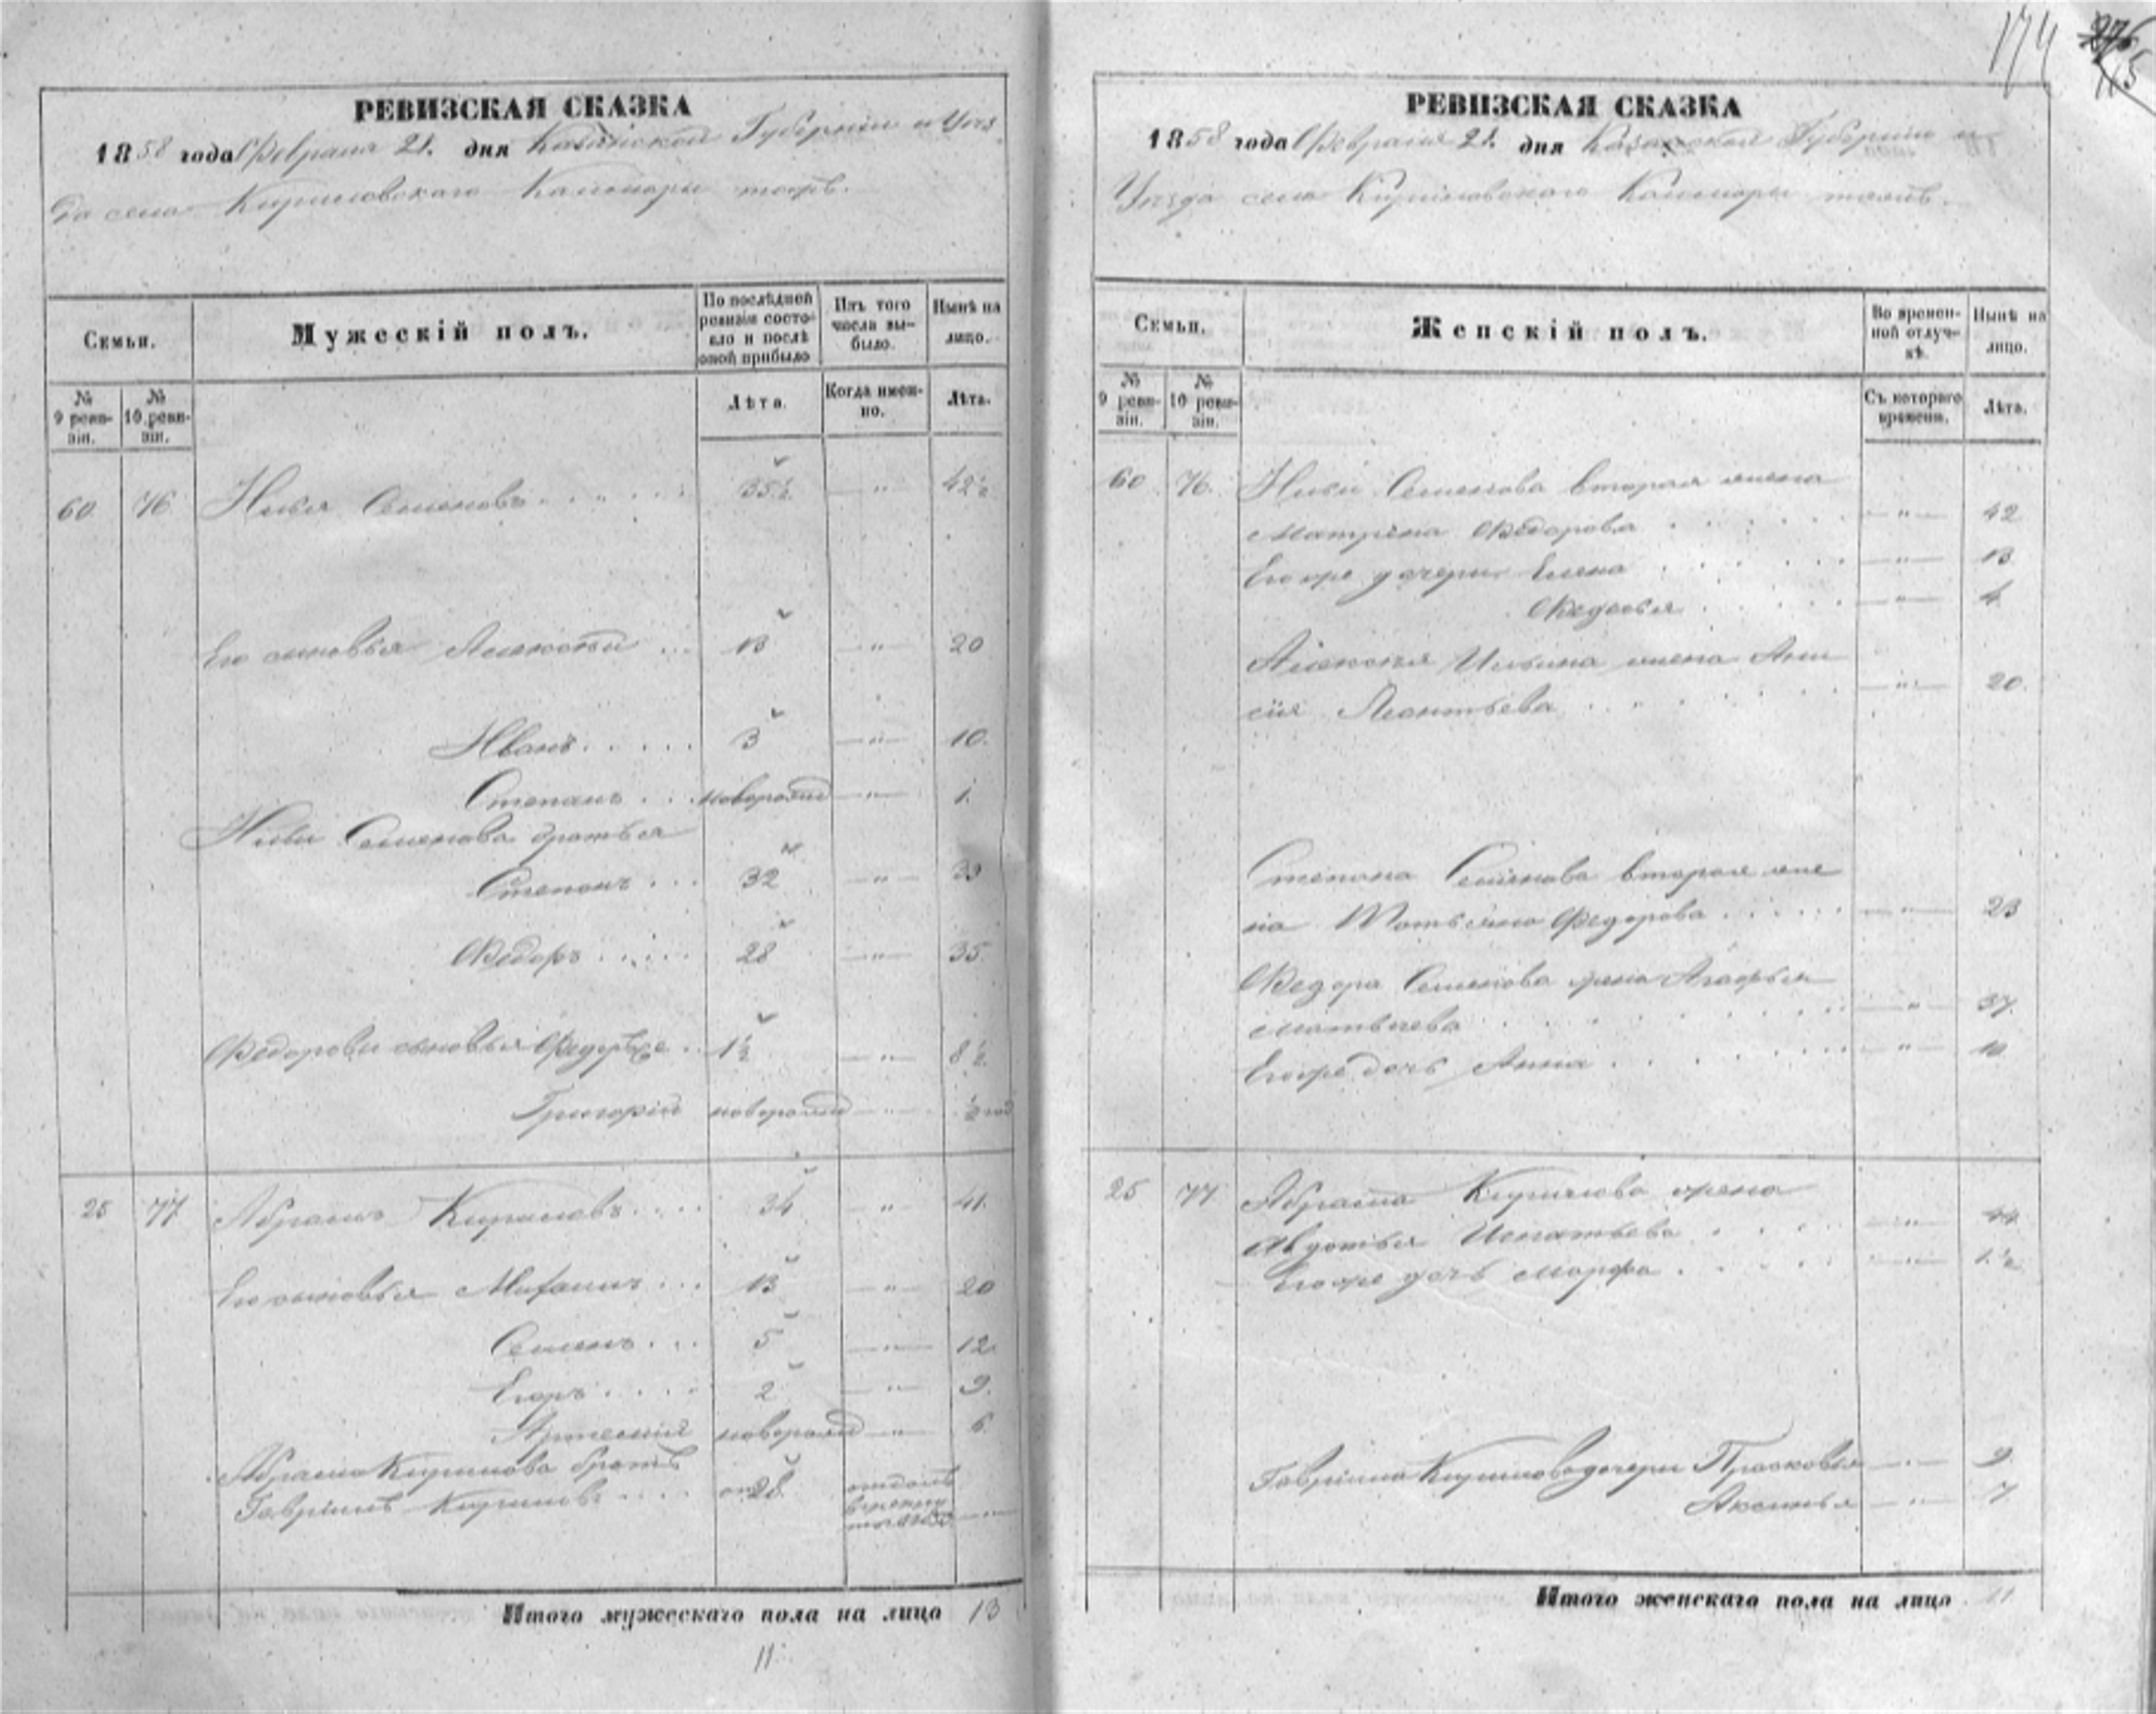 174
РЕВИЗСКАЯ СКАЗКА
1858 года Февраля 21. дня Казанской Губернiи и Уѣз
да села Кириловскаго
Семьи.
Мужескій полъ.
По послѣдней ревизіи состояло и послѣ оной прибыло
Изъ того числа выбыло.
Нынѣ на лицо.
№ 9 ревизіи.
№ 10 ревизіи.
Лѣта.
Когда именно.
Лѣта.
60 76 Илья Семеновъ 35½ — " — 42½
Его сыновья Алексѣй 13 — " — 20
Иванъ 3 — " — 10.
Степанъ новорожд — " — 1.
Ильи Семенова братья
Степанъ 32 — " — 39
Федоръ 28 — " — 35
Федоровы сыновья 1½ — " — 8½
Григорій новорожд — " — ½ год
25 77 Абрамъ Кириловъ 34 " 41.
Его сыновья 13 — " — 20
Семенъ 5 — " — 12.
Егоръ 2 — " — 9.
Артемій новорожд — " — 6
Абрама Кирилова братъ
Гаврiилъ Кириловъ 28 отданъ
Итого мужескаго пола на лицо 13
11
РЕВИЗСКАЯ СКАЗКА
1858 года Февраля 21. дня Казанской Губернiи и
Уѣзда села Кириловскаго
Семьи.
Женскій полъ.
Во временной отлучкѣ.
Нынѣ на лицо.
№ 9 ревизіи.
№ 10 ревизіи.
Съ котораго времени.
Лѣта.
60 76. Ильи Семенова вторая жена
Матрена Федорова — " — 42
Егоже дочери Елена — " — 13
Федосья — " — 4
Алексѣя Ильина жена Ани
сія Леонтьева — " — 20.
Степана Семенова вторая же
на Татьяна Федорова — " — 23
Федора Семенова жена Агафья
Матвѣева — " — 37.
Егоже дочь Анна — " — 10
25 77 Абрама Кирилова жена
Авдотья Игнатьева — " — 44
Егоже дочь Марфа — " — 1½
Гаврiила Кирилова дочери Прасковья — " — 9
Аксинья — " — 7
Итого женскаго пола на лицо 11